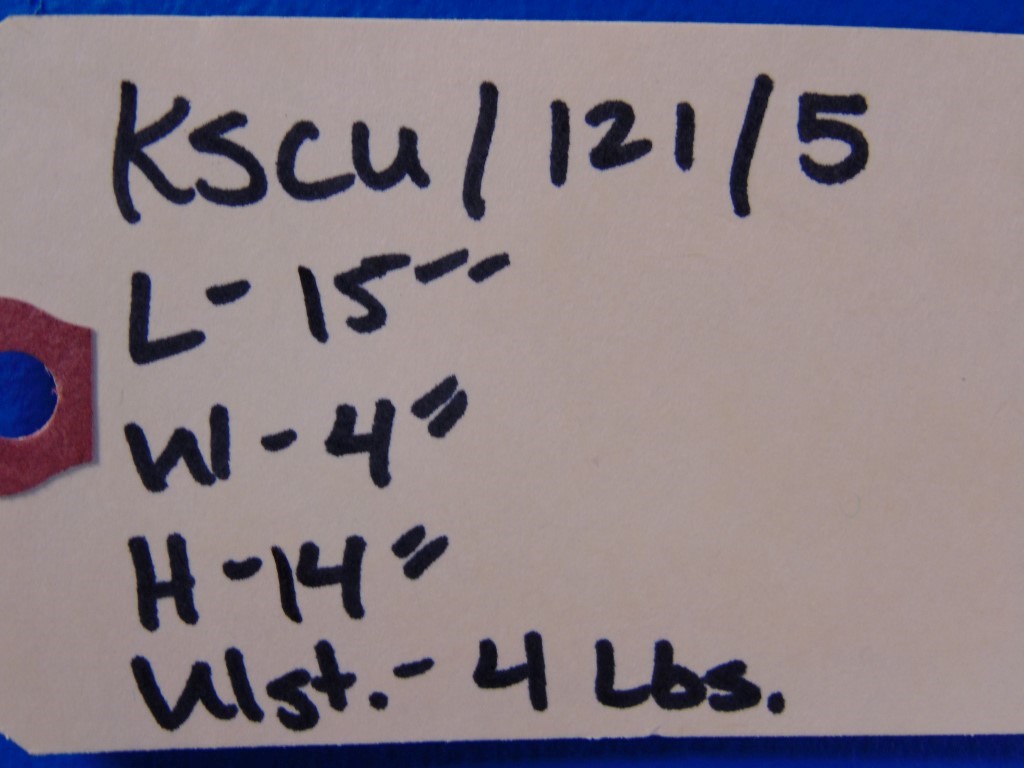 KSCU/121/5
L- 15"
W - 4"
H - 14"
Wgt. - 4 Lbs.